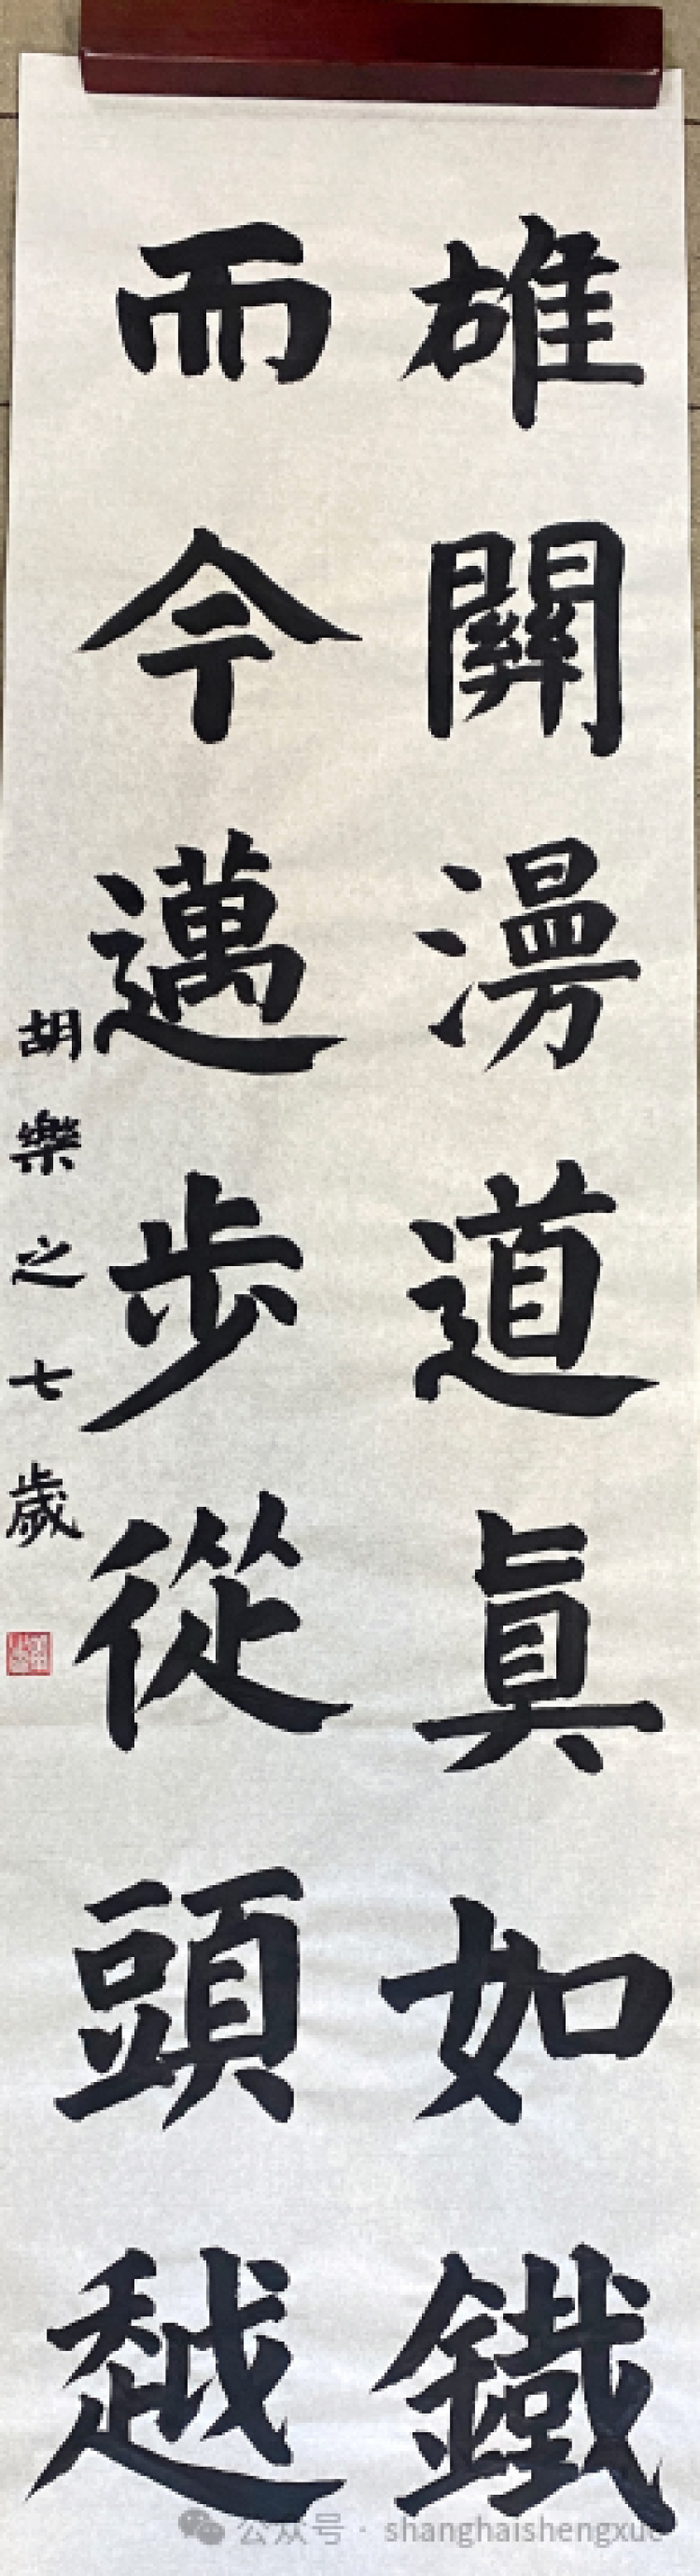 雄關漫道真如鐵
而今邁步從頭越
胡樂之七歲
公众号 · shanghaishengxue